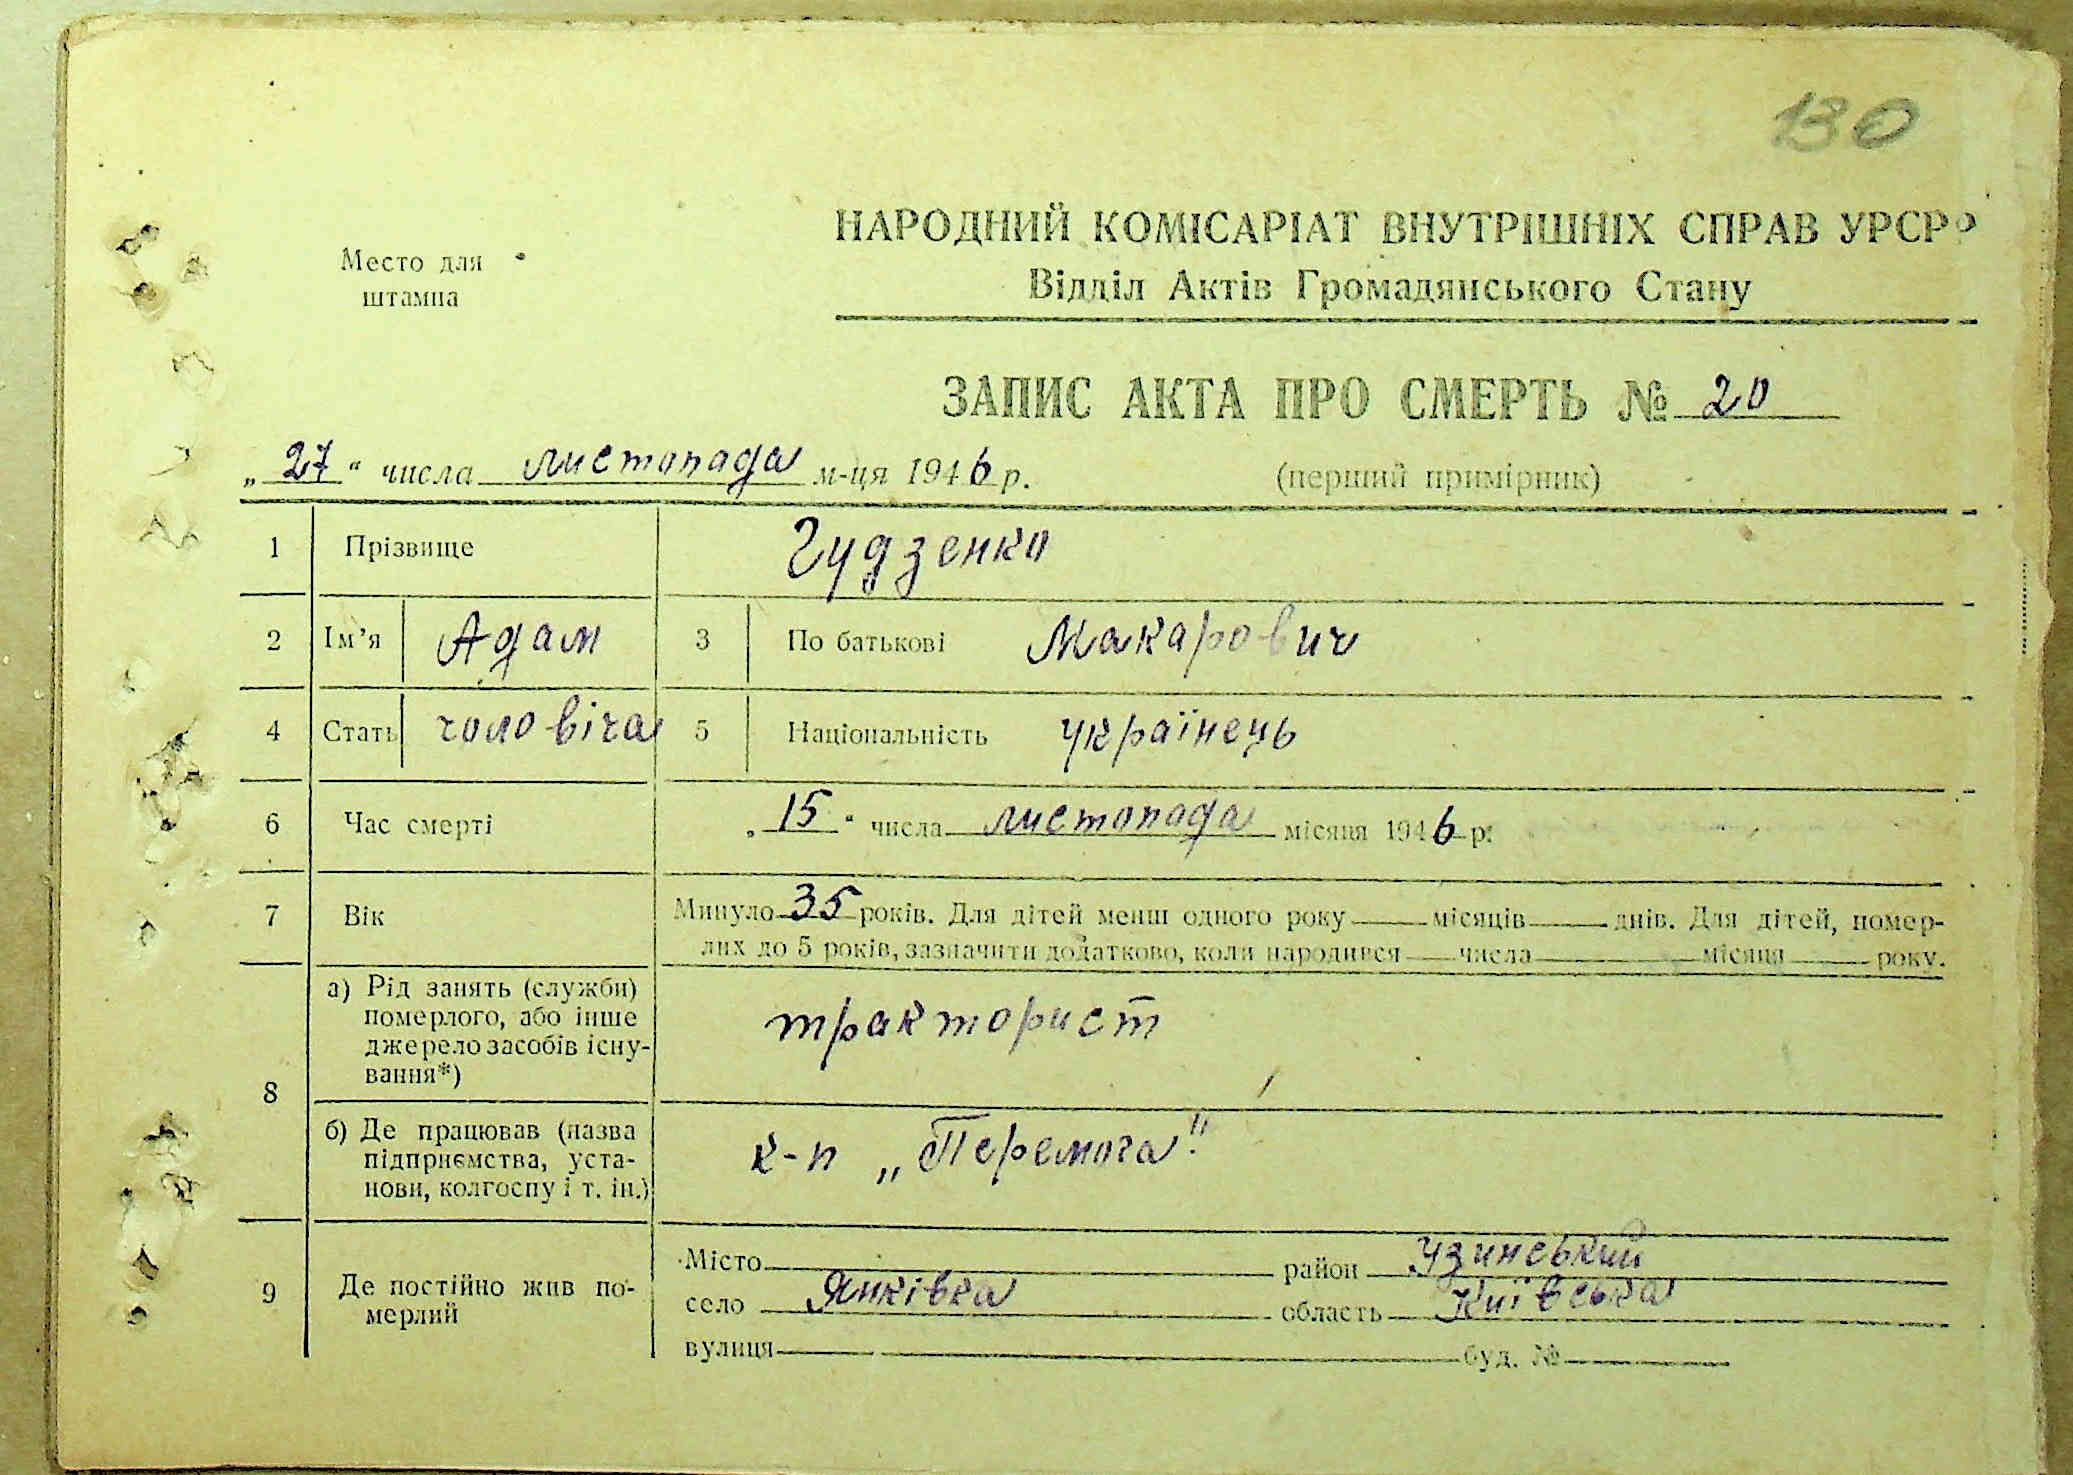 130
НАРОДНИЙ КОМІСАРІАТ ВНУТРІШНІХ СПРАВ УРСР
Место для
штампа
Відділ Актів Громадянського Стану
ЗАПИС АКТА ПРО СМЕРТЬ № 20
„27“ числа листопада м-ця 1946 р.
(перший примірник)
1 Прізвище Гудзенко
2 Ім’я Адам 3 По батькові Макарович
4 Стать чоловіча 5 Національність українець
6 Час смерті „15“ числа листопада місяця 1946 р.
7 Вік Минуло 35 років. Для дітей менш одного року місяців днів. Для дітей, помер-
лих до 5 років, зазначити додатково, коли народився числа місяця року.
8
а) Рід занять (служби)
померлого, або інше
джерело засобів існу-
вання*)
тракторист
б) Де працював (назва
підприємства, уста-
нови, колгоспу і т. ін.)
к-п „Перемога"
9 Де постійно жив по-
мерлий
Місто район Узинський
село Янківка область Київська
вулиця буд. №